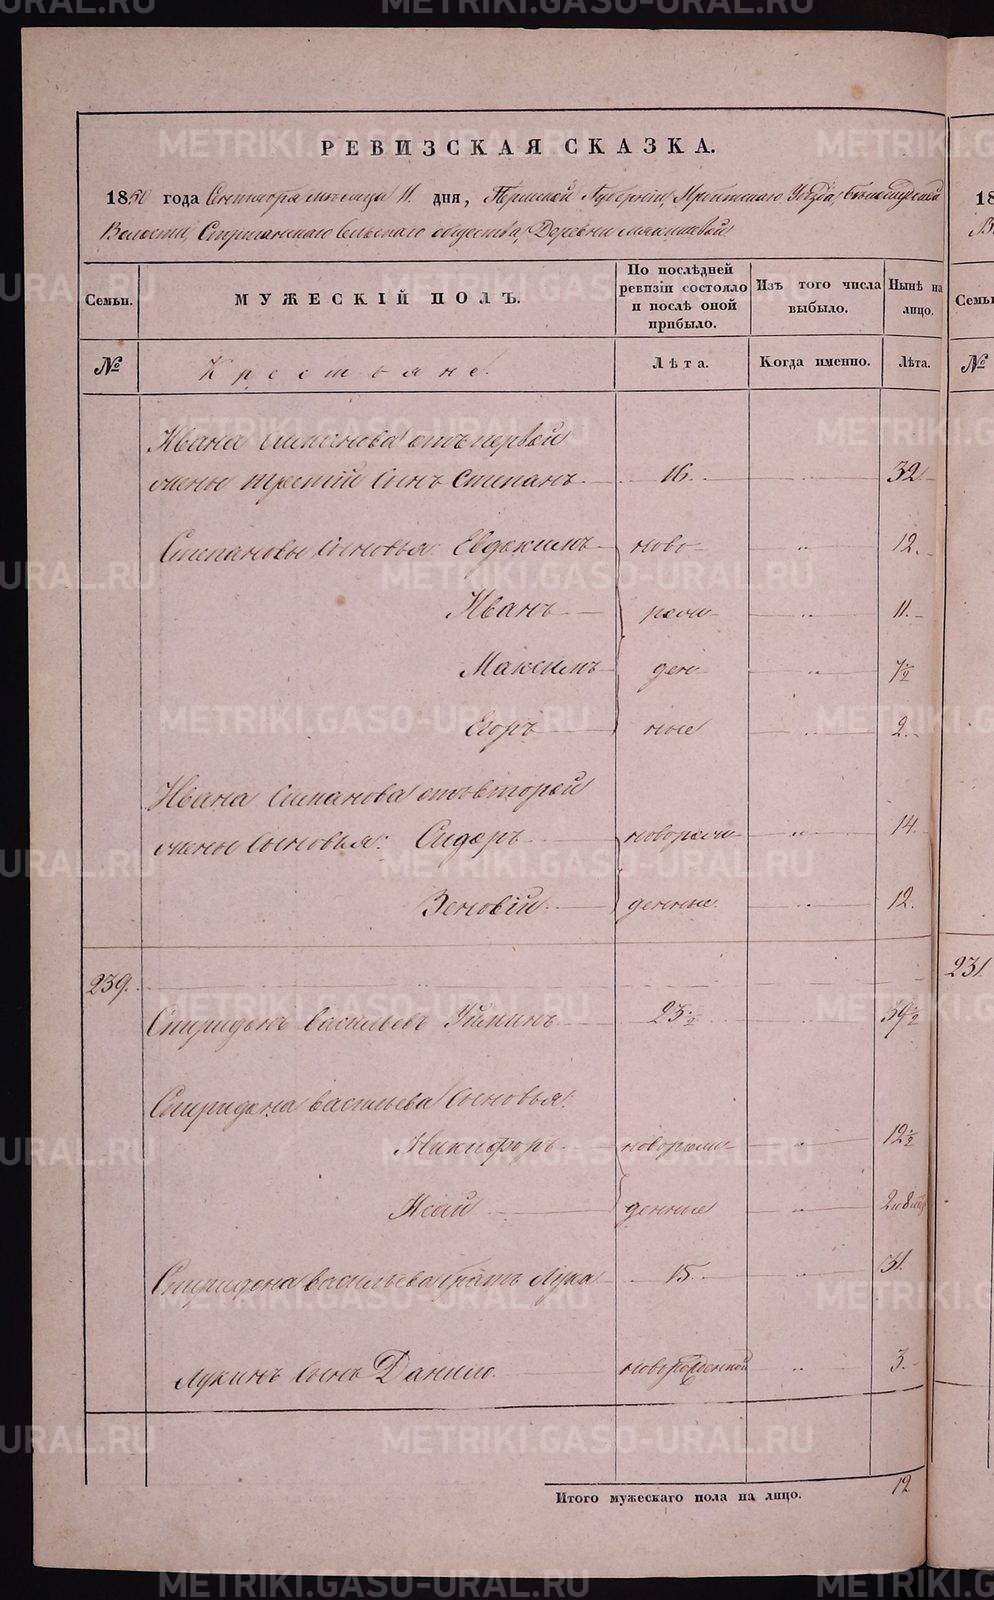 РЕВИЗСКАЯ СКАЗКА.
1850 года Сентября месяца 11 дня, Пермской Губернии, Ирбитскаго Уезда,
Волости, Стриганскаго сельскаго общества, Деревни Мякишевой
Семьи.
МУЖЕСКІЙ ПОЛЪ.
По послѣдней ревизіи состояло и послѣ оной прибыло.
Изъ того числа выбыло.
Нынѣ на лицо.
№
Крестьяне.
Лѣта.
Когда именно.
Лѣта.
Ивана Степанова отъ первой
жены третій сынъ Степанъ 16. 32.
Степановы сыновья Евдокимъ ново 12.
Иванъ рож 11.
Максимъ ден 7½
Егоръ ные 2.
Ивана Степанова отъ второй
жены сыновья: Сидоръ новорож 14.
Зеновій денные 12.
239.
Спиридонъ Васильевъ 23½ 39½
Спиридона Васильева сыновья:
Никифоръ новорож 12½
Исай денные
Спиридона Васильева братъ Лука 15. 31.
Лукинъ сынъ Данило новорожденной 3.
Итого мужескаго пола на лицо. 12
18
В
Семьи
№
231
METRIKI.GASO-URAL.RU